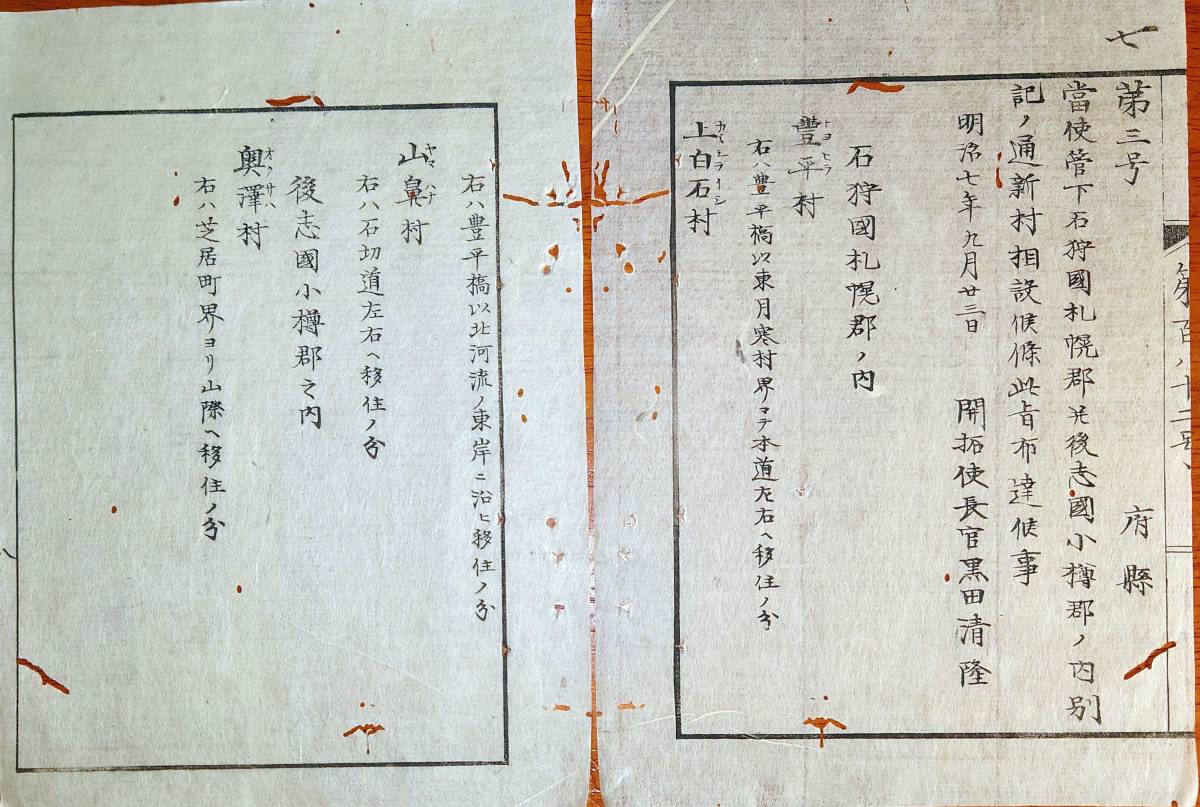 七
第百八十二号
第三号 府縣
當使管下石狩國札幌郡並後志國小樽郡ノ内別
記ノ通新村相設候條此旨布達候事
明治七年九月廿三日 開拓使長官黒田清隆
石狩國札幌郡ノ内
豐平村
トヨヒラ
右ハ豊平橋以東月寒村界マテ本道左右ヘ移住ノ分
上白石村
カミシライシ
右ハ豊平橋以北河流ノ東岸ニ沿ヒ移住ノ分
山鼻村
ヤマハナ
右ハ石切道左右ヘ移住ノ分
後志國小樽郡之内
奥澤村
オクサハ
右ハ芝居町界ヨリ山際ヘ移住ノ分